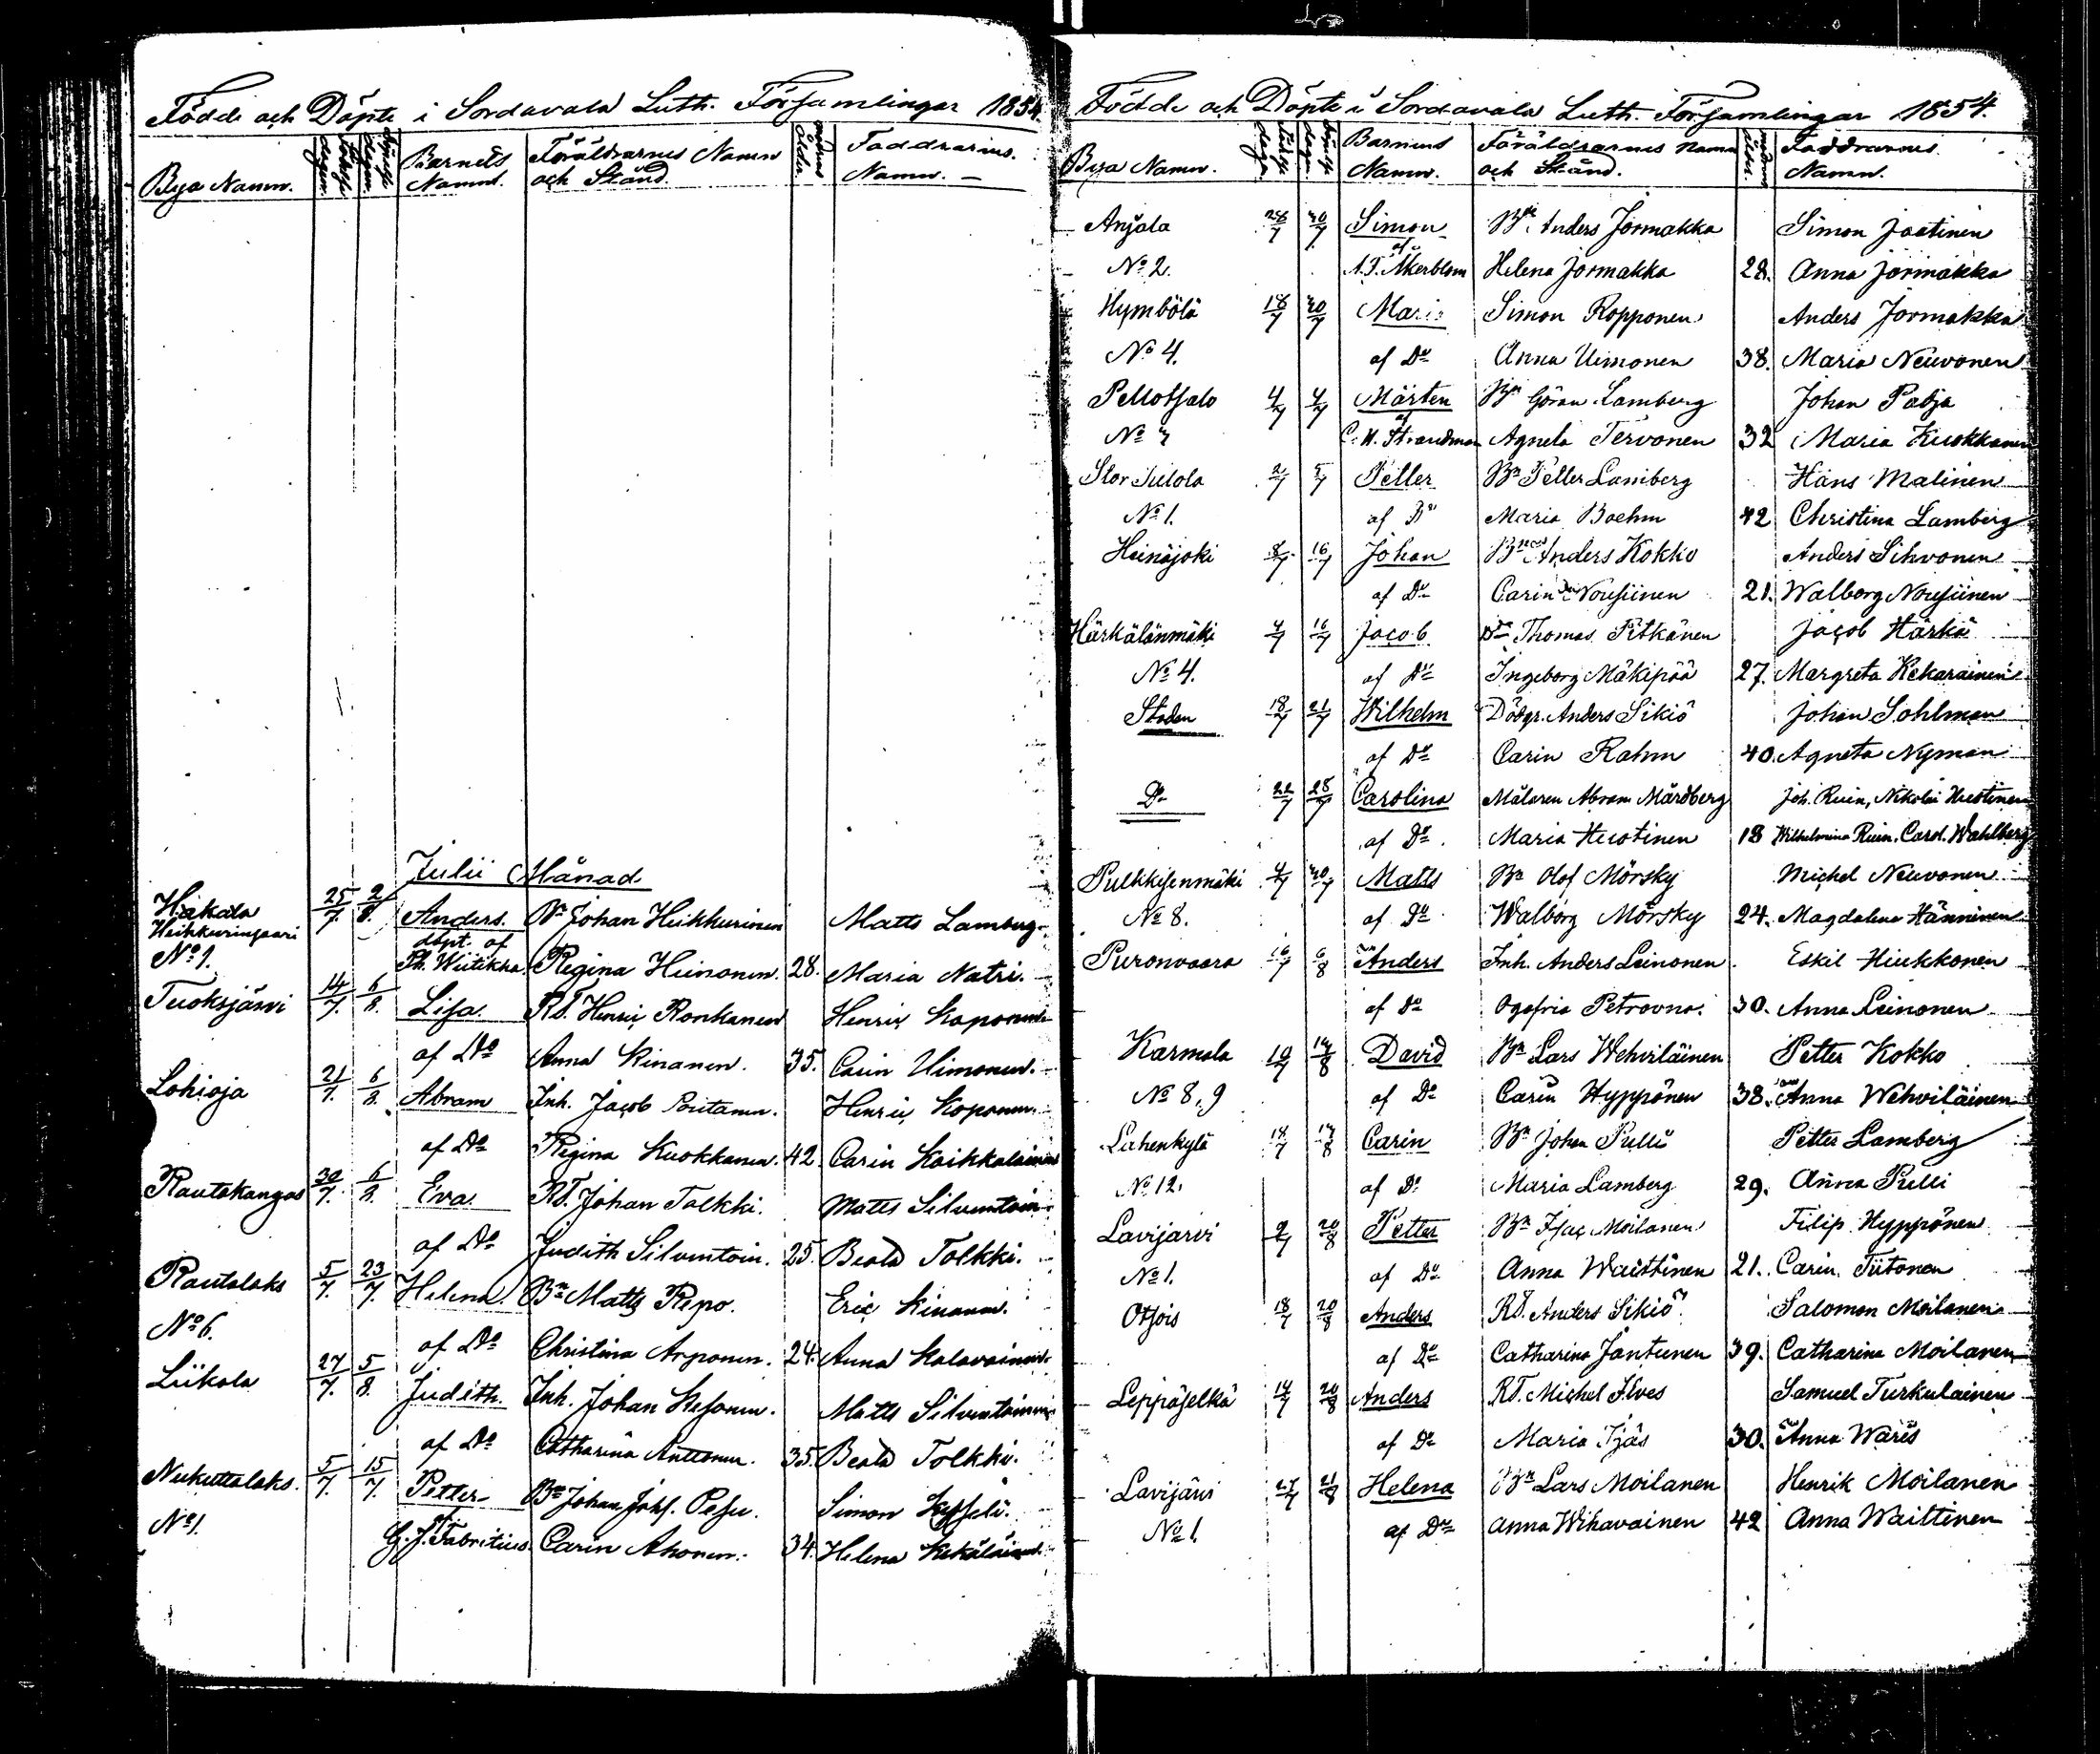 Födde och Döpte i Sordavala Luth. Församlingar 1854.
Bya Namn. Barnets Namn. Föräldrarnes Namn och Stånd. Faddrarnes Namn.
Julii Månad
Hakala 25/7 2/8 Anders. Bn Johan Heikkurinen Matts Lamberg
Heikkurinsaari döpt. af
No 1. Ph. Wiitikka. Regina Heinonen. 28. Maria Natri.
Tuoksjärvi 14/7. 6/8. Lisa. RT. Henric Ronkanen Henric Koponen
af Do Anna Kinanen. 35. Carin Uimonen.
Lohioja 21/7. 6/8. Abram Inh. Jacob Poutanen. Henric Koponen.
af Do Regina Kuokkanen. 42. Carin Kaikkalainen
Rautakangas 30/7. 6/8. Eva. RT. Johan Tolkki. Matts Silventoin
af Do Judith Silventoin. 25. Beata Tolkki.
Rautalaks 5/7. 23/7. Helena. Bn Matts Repo. Eric Kinanen.
No 6. af Do Christina Arponen. 24. Anna Kalavainen.
Liikola 27/7. 5/8. Judith. Inh. Johan Kesonen. Matts Silventoinen
af Do Catharina Anttonen. 35. Beata Tolkki.
Nukuttalaks. 5/7. 15/7. Petter Bn Johan Johs. Pesu. Simon
No 1. af G. J. Fabritius. Carin Ahonen. 34. Helena Kekäläinen.
Födde och Döpte i Sordavala Luth. Församlingar 1854.
Bya Namn. Barnens Namn. Föräldrarnes Namn och Stånd. Faddrarnes Namn.
Anjala 28/7 30/7 Simon Bn Anders Jormakka Simon Jaatinen
No 2. af A. F. Åkerblom Helena Jormakka 28. Anna Jormakka
Hymbölä 18/7 30/7 Maria Simon Ropponen Anders Jormakka
No 4. af Do Anna Uimonen 38. Maria Neuvonen
Pellotsalo 4/7 4/7 Mårten Bn Göran Lamberg Johan Patja
No 7 af C. H. Strandman Agneta Tervonen 32 Maria Kuokkanen
Stor Tulola 2/7 5/7 Petter Bn Petter Lamberg Hans Malinen
No 1. af Do Maria Boehm 42 Christina Lamberg
Heinäjoki 8/7 16/7 Johan Bn Anders Kokko Anders Sihvonen
af Do Carin Nousiinen 21. Walborg Nousiinen
Härkälänmäki 4/7 16/7 Jacob Bn Thomas Pitkänen Jacob Härkä
No 4. af Do Ingeborg Mäkipää 27. Margreta Kekarainen
Staden 18/7 21/7 Wilhelm Dödgr. Anders Sikiö Johan Sohlman
af Do Carin Rahm 40. Agneta Nyman
Do 22/7 28/7 Carolina Målaren Abram Mårdberg Joh. Ruin, Nikolai Huotinen
af Do. Maria Huotinen 18 Wilhelmina Ruin. Carol. Wahlberg
Pulkkisenmäki 4/7 30/7 Matts Bn Olof Mörsky Michel Neuvonen
No 8. af Do Walborg Mörsky 24. Magdalena Hänninen
Puronvaara 16/7 6/8 Anders Inh. Anders Leinonen Eskil Hiukkonen
af Do Ogafria Petrovna. 30. Anna Leinonen
Karmala 19/7 14/8 David Bn Lars Wehviläinen Petter Kokko
No 8, 9 af Do Carin Hyppönen 38. Anna Wehviläinen
Lahenkylä 18/7 14/8 Carin Bn Johan Pulli Petter Lamberg
No 12. af Do Maria Lamberg 29. Anna Pulli
Lavijärvi 2/7 20/8 Petter Bn Isac Moilanen Filip Hyppönen
No 1. af Do Anna Waittinen 21. Carin Tiitonen
Otsois 18/7 20/8 Anders RT. Anders Sikiö Salomon Moilanen
af Do Catharina Jantunen 39. Catharina Moilanen
Leppäselkä 14/7 20/8 Anders RT. Michel Ilves Samuel Turkulainen
af Do Maria Ijäs 30. Anna Wares
Lavijärvi 27/7 21/8 Helena Bn Lars Moilanen Henrik Moilanen
No 1. af Do Anna Wihavainen 42 Anna Waittinen